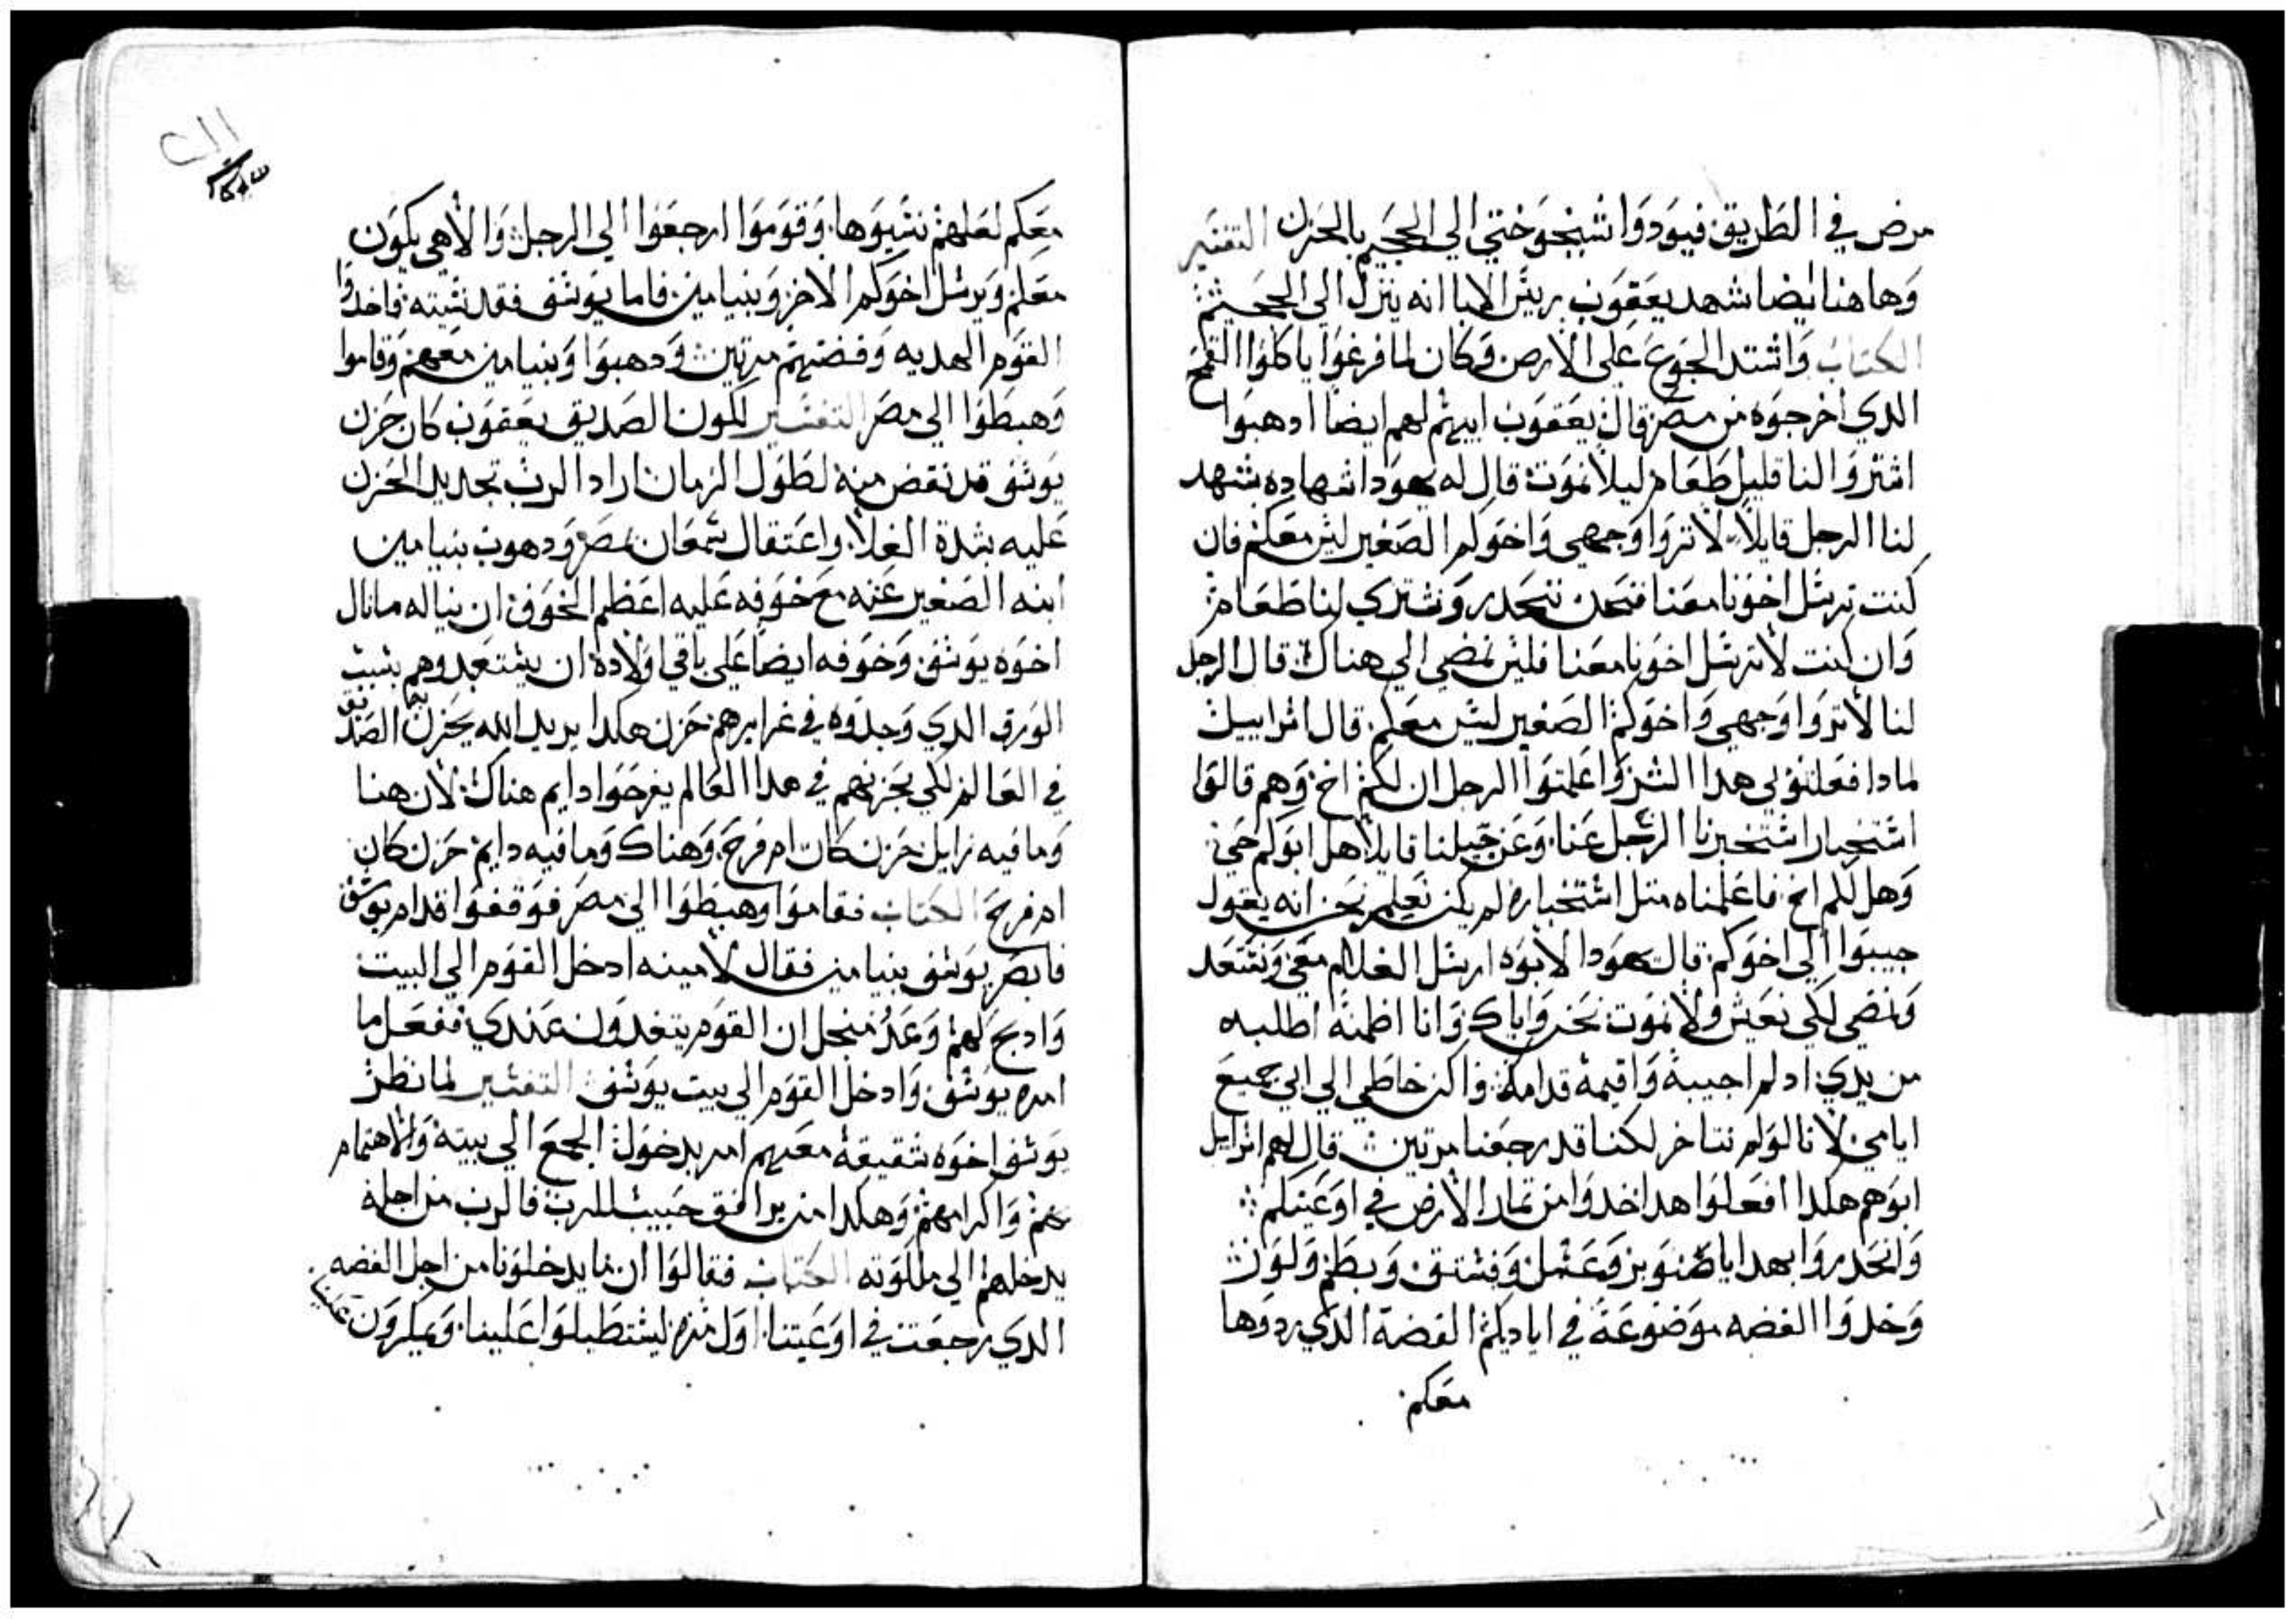 مرض في الطريق فيودوا شيخوختي الي الجحيم بالحزن التفسير
وهاهنا ايضا شهد يعقوب ريس الابا انه ينزل الي الجحيم
الكتاب واشتد الجوع علي الارض وكان لما فرغوا ياكلوا القمح
الدي اخرجوه من مصر قال يعقوب ابيهم لهم ايضا ادهبوا
اشتروا لنا قليل طعام ليلا نموت قال له يهودا شهاده شهد
لنا الرجل قايلا لا تروا وجهي واخوكم الصغير ليس معكم فان
كنت ترسل اخونا معنا فنحن ننحدر ونشتري لنا طعام
وان كنت لا ترسل اخونا معنا فليس نمضي الي هناك قال الرجل
لنا لا تروا وجهي واخوكم الصغير ليس معكم قال اسراييل
لمادا فعلتو بي هدا الشر واعلمتوا الرجل ان لكم اخ وهم قالوا
استخبار استخبرنا الرجل عنا وعن جيلنا قايلا هل ابوكم حي
وهل لكم اخ فاعلمناه متل استخباره لم يكن نعلم نحن انه يقول
جيبوا الي اخوكم قال يهودا لابوه ارسل الغلام معي ونستعد
ونمضي لكي نعيش ولا نموت نحن واياك وانا اظمنه اطلبه
من يدي ادلم اجيبه واقيمه قدامك فاكن خاطي الي ابي جميع
ايامي لانا لولم نتاخر لكنا قد رجعنا مرتين قال لهم اسراييل
ابوهم هكدا افعلوا هدا خدوا من تمار الارض في اوعيتكم
وانحدروا بهدايا صنوبر وعسل وفستق وبطم ولوز
وخدوا الفضه موضوعة في اياديكم الفضة الدي ردوها
معكم
معكم لعلهم نسيوها وقوموا ارجعوا الي الرجل والاهي يكون
معكم ويرسل اخوكم الاخر وبنيامين فاما يوسف فقد نسيته فاخدوا
القوم الهديه وفضتهم مرتين ودهبوا وبنيامين معهم وقاموا
وهبطوا الي مصر التفسير لكون الصديق يعقوب كان حزن
يوسف قد نقص منه لطول الزمان اراد الرب تجديد الحزن
عليه بشدة الغلا واعتقال سمعان بمصر ودهوب بنيامين
ابنه الصغير عنه مع خوفه عليه اعظم الخوف ان يناله مانال
اخوه يوسف وخوفه ايضا علي باقي اولاده ان يستعبدوهم بسبب
الورق الدي وجدوه في غرايرهم حزن هكدا يريد الله يحزن الصديق
في العالم لكي بحزنهم في هدا العالم يفرحوا دايم هناك لان هنا
ومافيه زايل حزن كان ام فرح وهناك ومافيه دايم حزن كان
ام فرح الكتاب فقاموا وهبطوا الي مصر فوقفوا قدام يوسف
فابصر يوسف بنيامين فقال لامينه ادخل القوم الي البيت
وادبح لهم وعد منجل ان القوم يتغدون عندي ففعل ما
امره يوسف وادخل القوم الي بيت يوسف التفسير لما نظر
يوسف اخوه شقيقه معهم امر بدخول الجمع الي بيته والاهتمام
بهم واكرامهم وهكدا من يرافق حبيب للرب فالرب من اجله
يدخلهم الي ملكوته الكتاب فقالوا ان ما يدخلونا من اجل الفضه
الدي رجعت في اوعيتنا اول مره ليستطيلوا علينا ويمكرون علينا